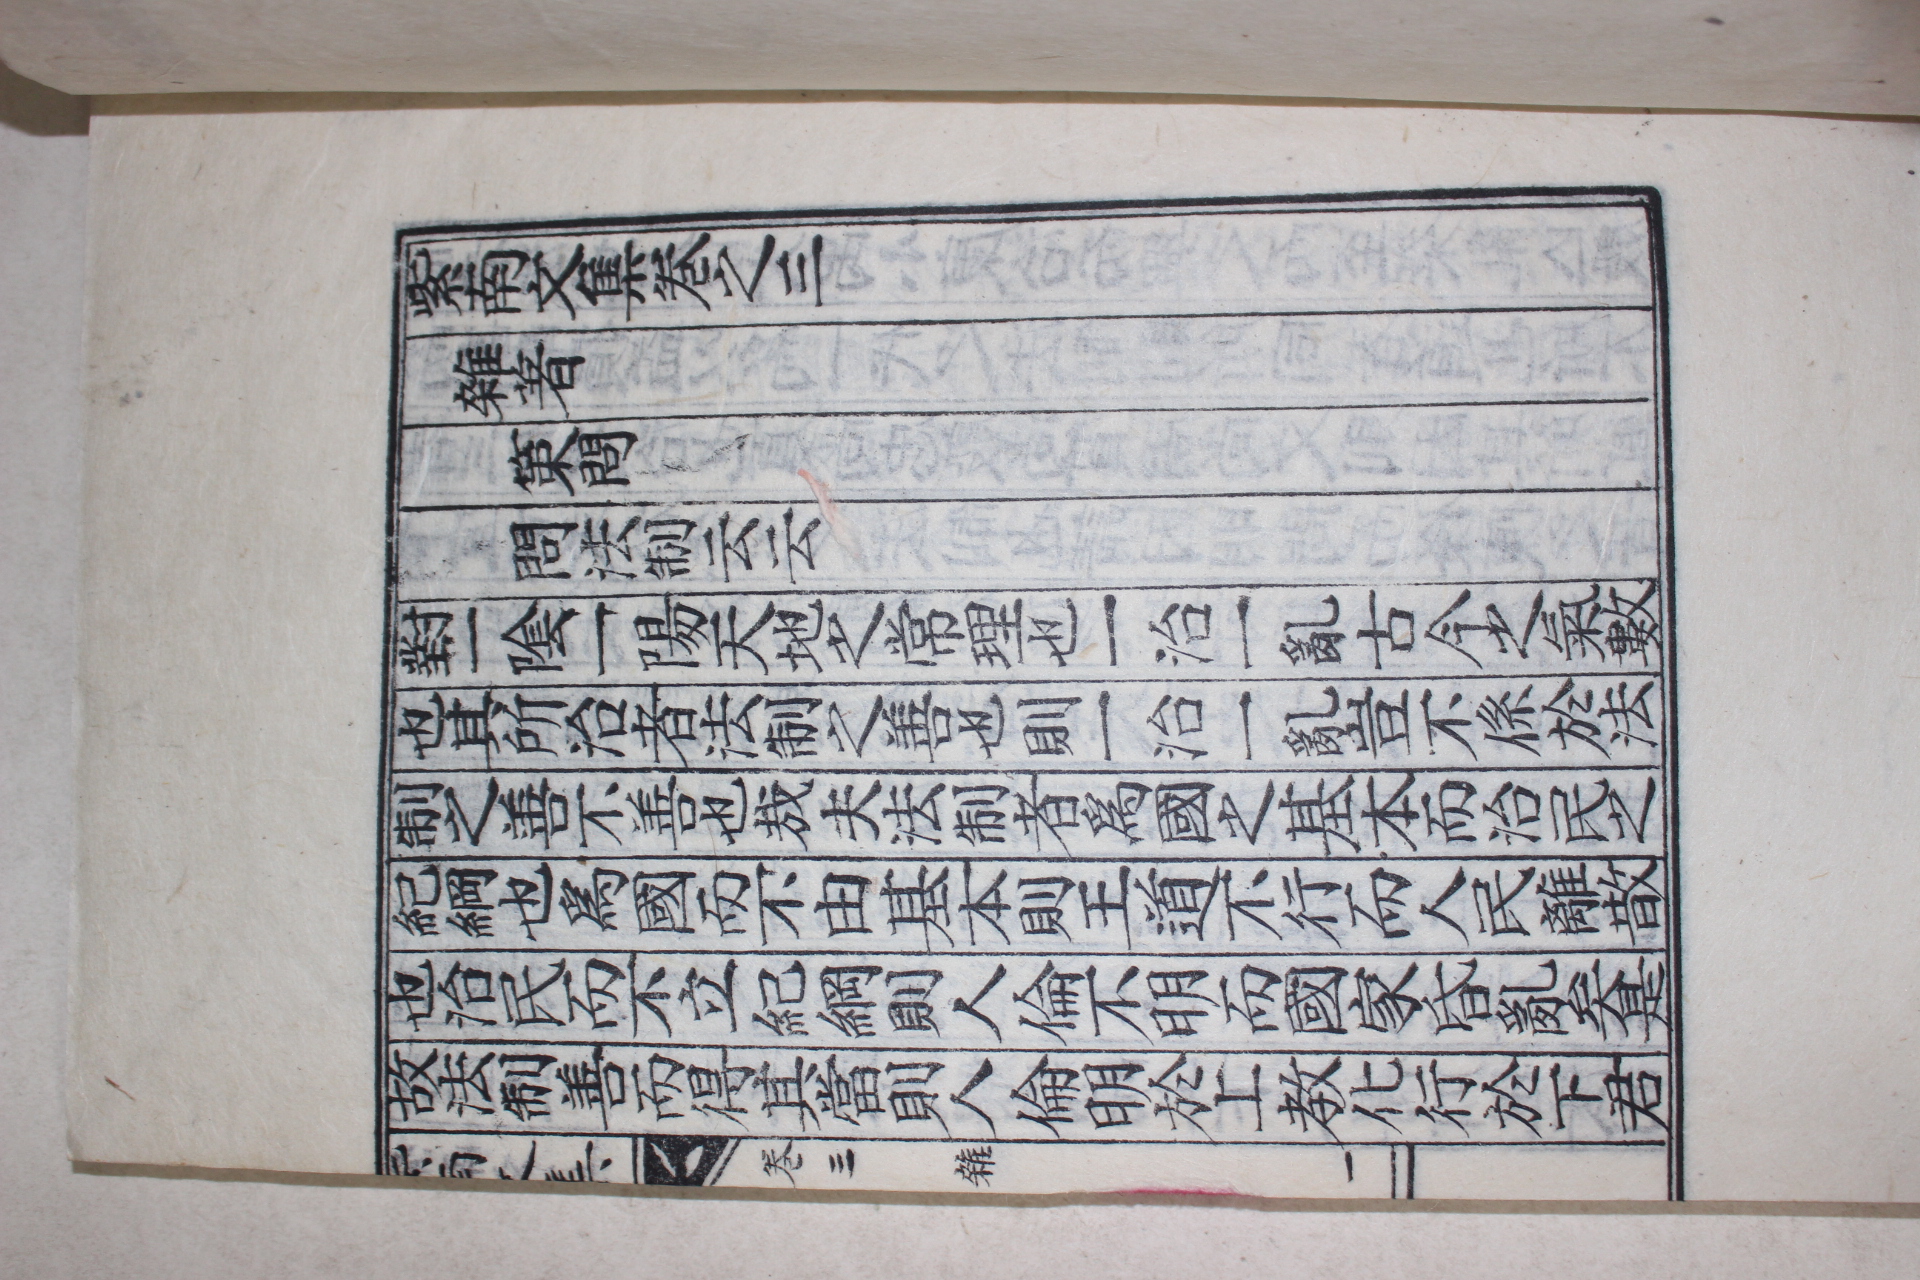 紫南文集卷之三
雜著
策問
問法制云云
對一陰一陽天地之常理也一治一亂古今之氣數
也其所治者法制之善也則一治一亂豈不係於法
制之善不善也哉夫法制者爲國之基本而治民之
紀綱也爲國而不由基本則王道不行而人民離散
也治民而不立紀綱則人倫不明而國家昏亂矣是
故法制善而得其當則人倫明於上敎化行於下君
紫南文集
卷三
雜
一